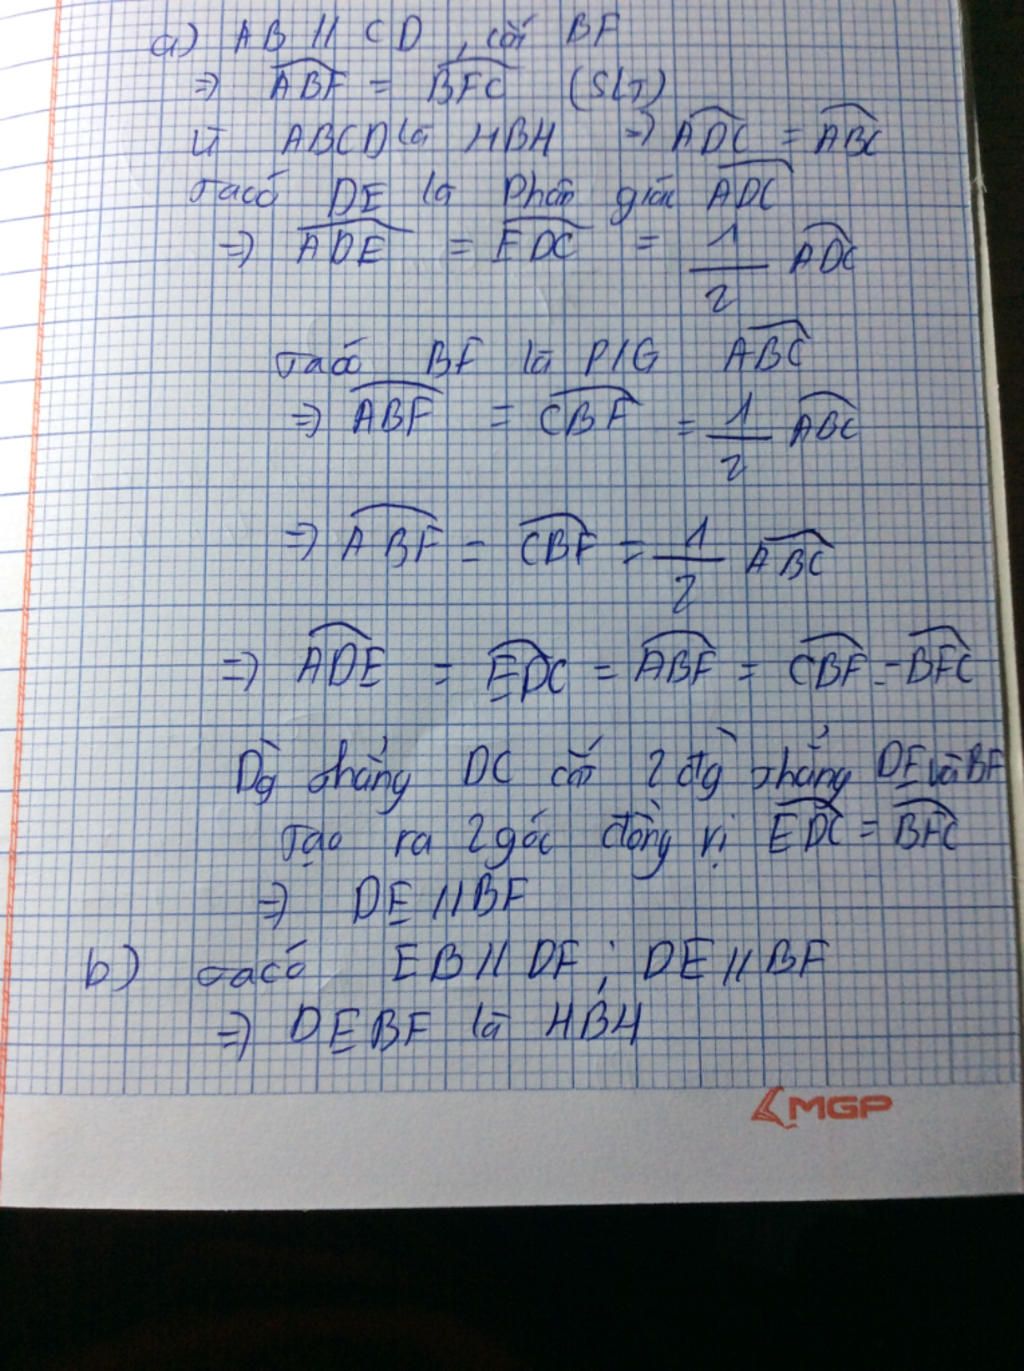 a) AB // CD, cắt BF
=> ABF = BFC (SLT)
Vì ABCD là HBH => ADC = ABC
Ta có DE là Phân giác ADC
=> ADE = EDC = 1/2 ADC
Ta có BF là P/G ABC
=> ABF = CBF = 1/2 ABC
=> ABF = CBF = 1/2 ABC
=> ADE = EDC = ABF = CBF = BFC
Dg thẳng DC cắt 2 đg thẳng DE và BF
Tạo ra 2 góc đồng vị EDC = BFC
=> DE // BF
b) Ta có EB // DF ; DE // BF
=> DEBF là HBH
MGP